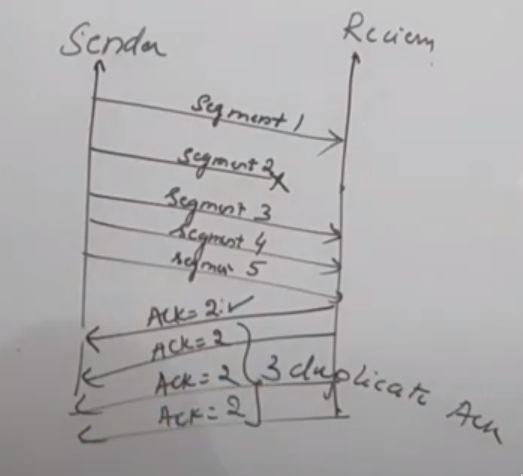 Sender
Recievr
Segment 1
Segment 2
Segment 3
Segment 4
segment 5
Ack = 2
Ack = 2
Ack = 2
Ack = 2
3 duplicate Ack